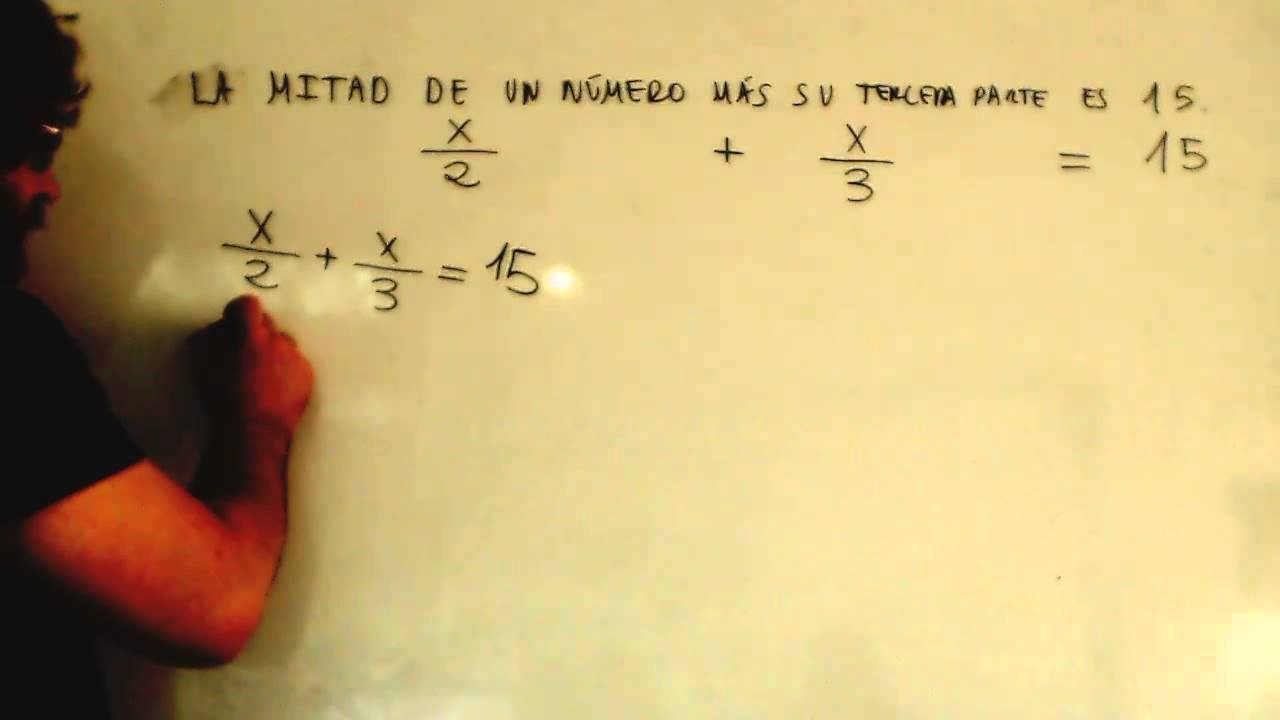 LA MITAD DE UN NÚMERO MÁS SU TERCERA PARTE ES 15.
x/2 + x/3 = 15
x/2 + x/3 = 15